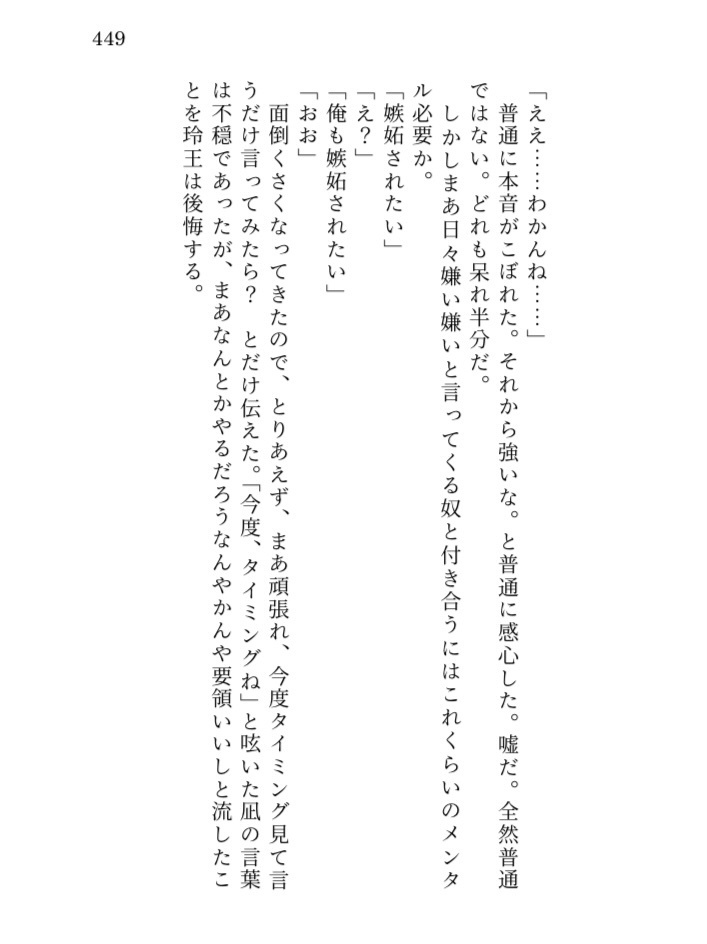 449
「ええ……わかんね……」
　普通に本音がこぼれた。それから強いな。と普通に感心した。嘘だ。全然普通
ではない。どれも呆れ半分だ。
　しかしまあ日々嫌い嫌いと言ってくる奴と付き合うにはこれくらいのメンタ
ル必要か。
「嫉妬されたい」
「え？」
「俺も嫉妬されたい」
「おお」
　面倒くさくなってきたので、とりあえず、まあ頑張れ、今度タイミング見て言
うだけ言ってみたら？　とだけ伝えた。「今度、タイミングね」と呟いた凪の言葉
は不穏であったが、まあなんとかやるだろうなんやかんや要領いいしと流したこ
とを玲王は後悔する。